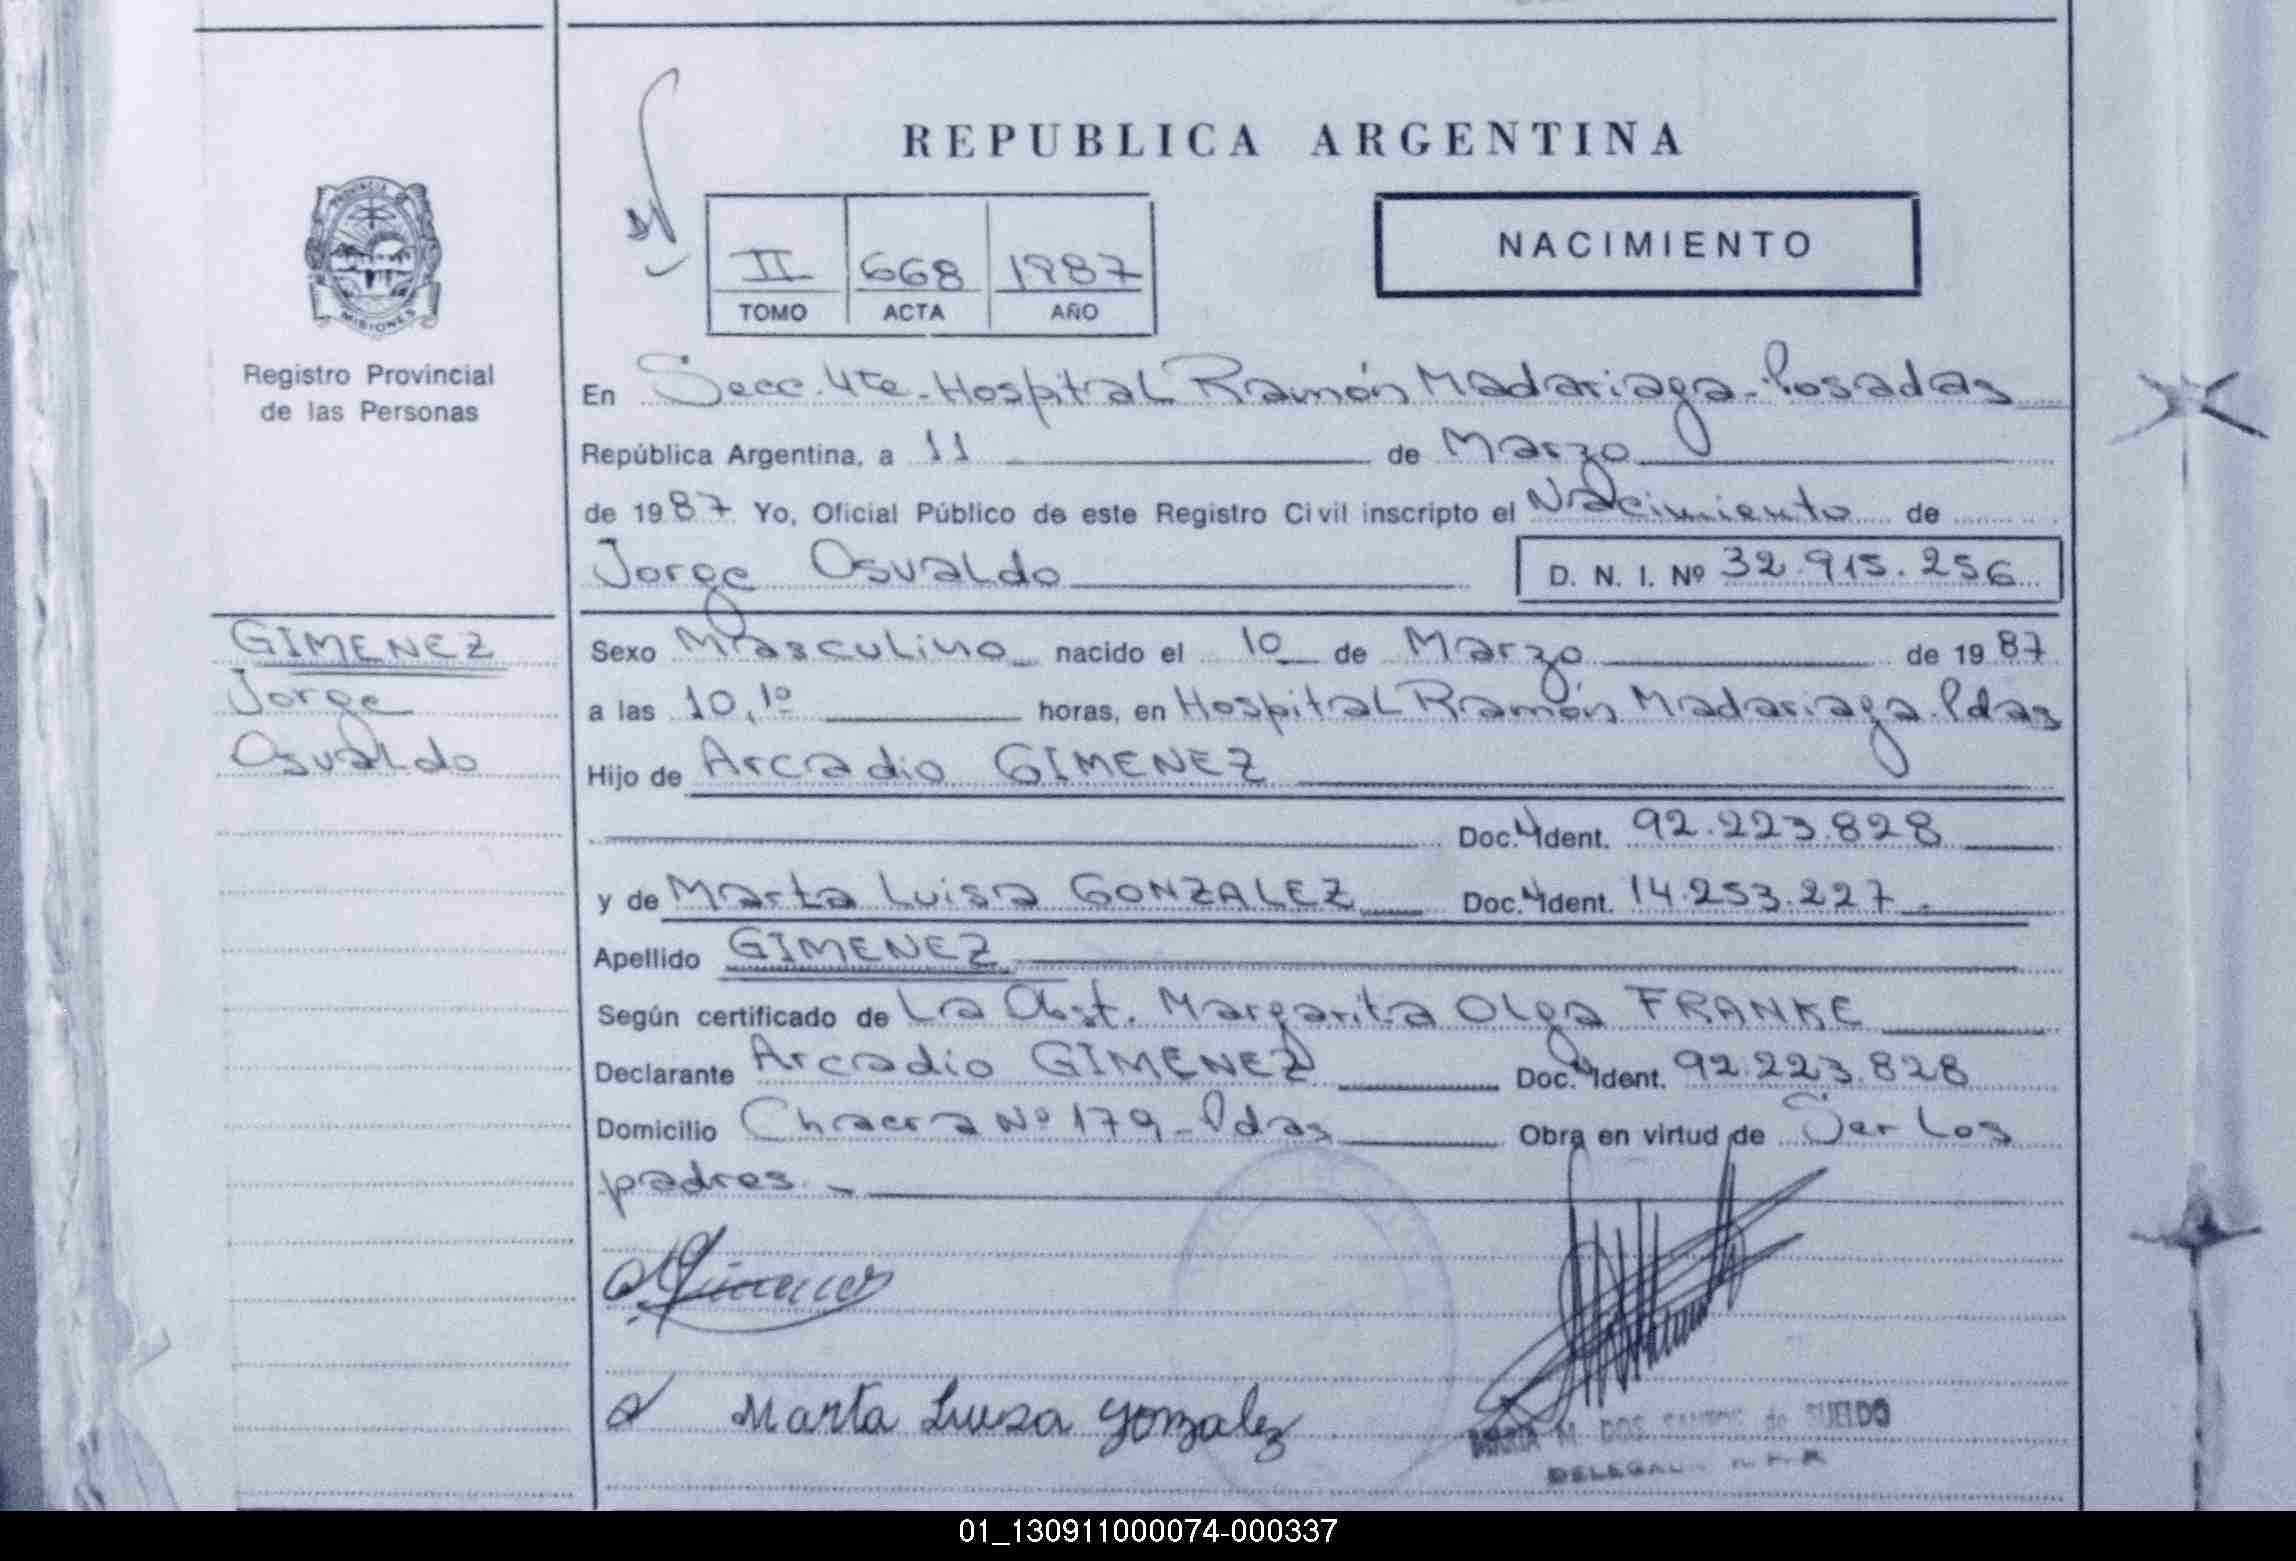 REPUBLICA ARGENTINA
PROVINCIA
MISIONES
Registro Provincial
de las Personas
II 668 1987
TOMO ACTA AÑO
NACIMIENTO
En Secc. 4ta. Hospital Ramón Madariaga - Posadas
República Argentina, a 11 de Marzo
de 1987 Yo, Oficial Público de este Registro Civil inscripto el Nacimiento de
Jorge Osvaldo D. N. I. Nº 32.915.256
GIMENEZ
Jorge
Osvaldo
Sexo Masculino nacido el 10 de Marzo de 1987
a las 10,10 horas, en Hospital Ramón Madariaga. Pdas
Hijo de Arcadio GIMENEZ
Doc. Ident. 92.223.828
y de Marta Luisa GONZALEZ Doc. Ident. 14.253.227
Apellido GIMENEZ
Según certificado de La Obst. Margarita Olga FRANKE
Declarante Arcadio GIMENEZ Doc. Ident. 92.223.828
Domicilio Chacra Nº 179 - Pdas Obra en virtud de Ser los
padres. -
Gimenez
Marta Luisa Gonzalez
MARIA M. DOS SANTOS de SUELDO
01_130911000074-000337